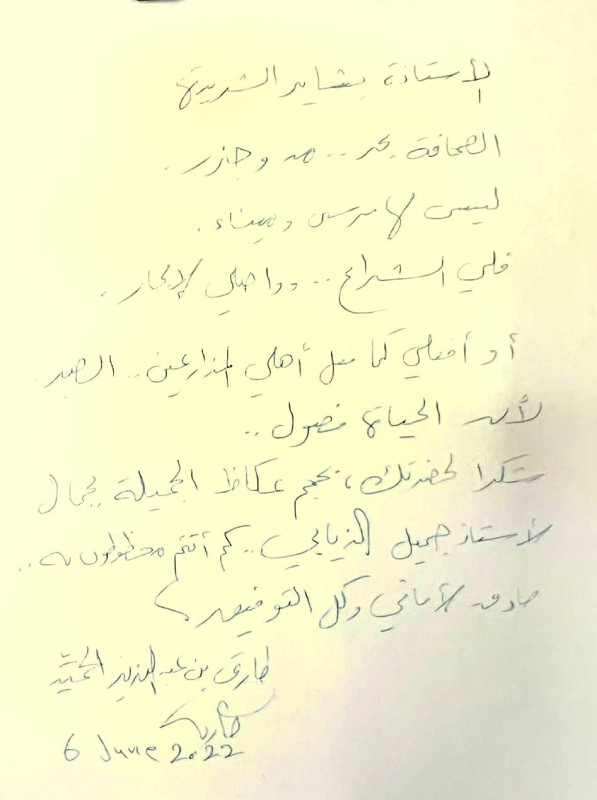 الأستاذة بشاير الشريدة
الصحافة بحر.. مد وجزر.
ليس لها مرسى وميناء.
فلي الشراع.. وواصلي الإبحار.
أو افعلي كما فعل أهلي المزارعين.. الصبر
لأن الحياة فصول..
شكرا لحضرتك، بحجم عكاظ الجميلة بجمال
الأستاذ جميل الذيابي.. كم أنتم محظوظون به..
صادق الأماني وكل التوفيق
طارق بن عبدالعزيز
طارق
6 June 2022